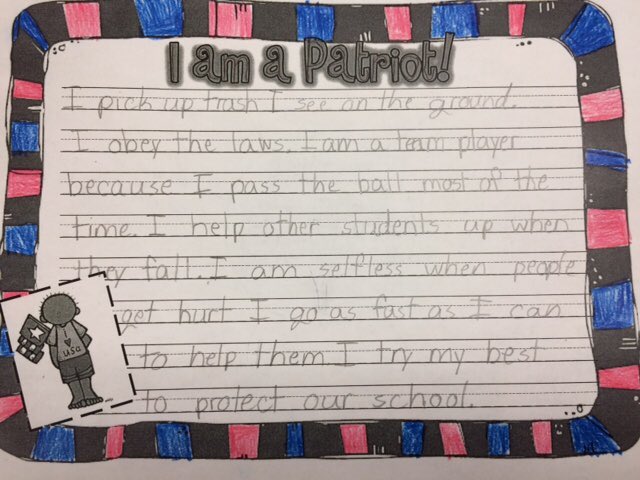 I am a Patriot!
I pick up trash I see on the ground.
I obey the laws. I am a team player
because I pass the ball most of the
time. I help other students up when
they fall. I am selfless when people
get hurt I go as fast as I can
to help them I try my best
to protect our school.
USA